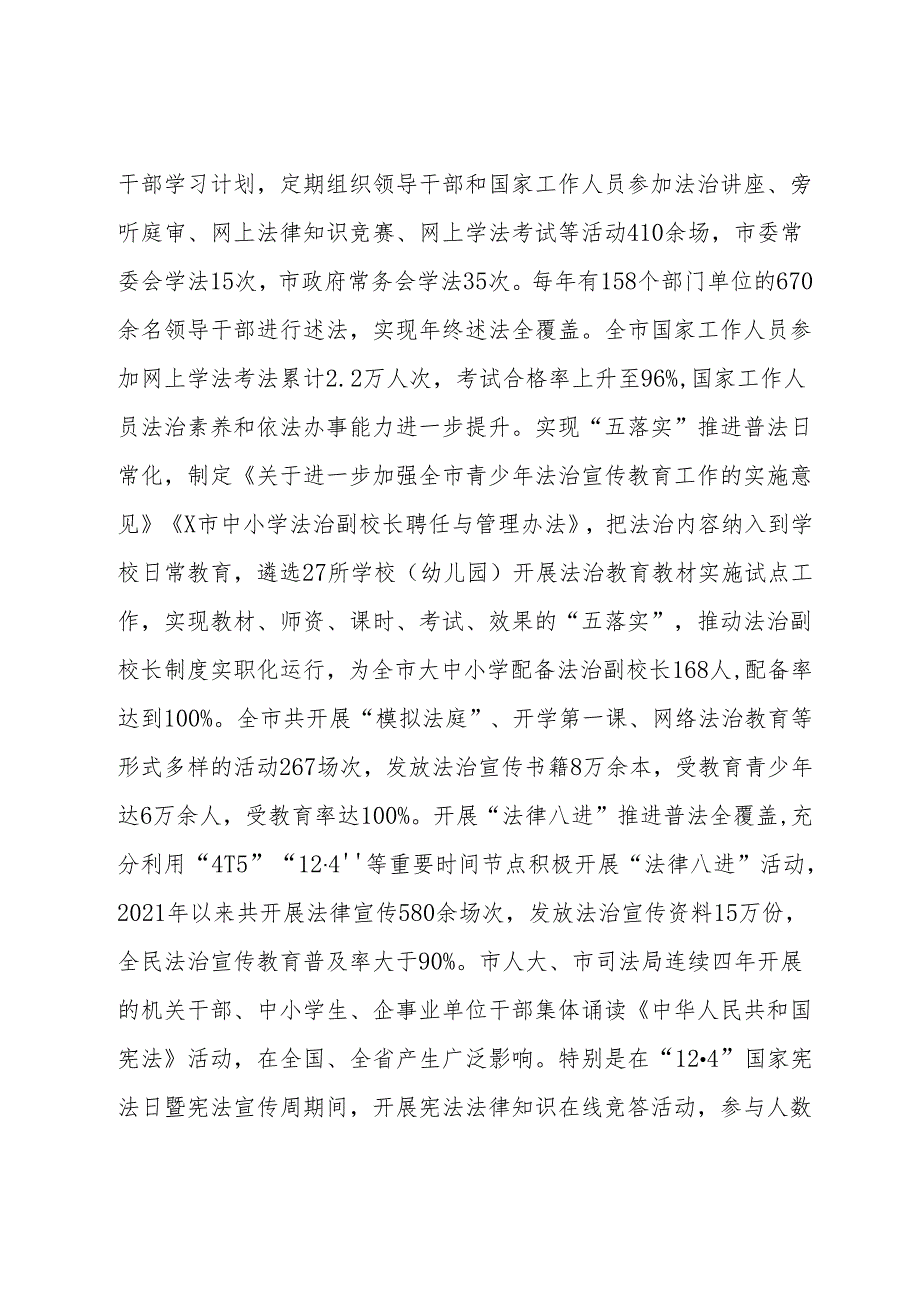 干部学习计划，定期组织领导干部和国家工作人员参加法治讲座、旁
听庭审、网上法律知识竞赛、网上学法考试等活动410余场，市委常
委会学法15次，市政府常务会学法35次。每年有158个部门单位的670
余名领导干部进行述法，实现年终述法全覆盖。全市国家工作人员参
加网上学法考法累计2.2万人次，考试合格率上升至96%,国家工作人
员法治素养和依法办事能力进一步提升。实现“五落实”推进普法日
常化，制定《关于进一步加强全市青少年法治宣传教育工作的实施意
见》《X市中小学法治副校长聘任与管理办法》，把法治内容纳入到学
校日常教育，遴选27所学校（幼儿园）开展法治教育教材实施试点工
作，实现教材、师资、课时、考试、效果的“五落实”，推动法治副
校长制度实职化运行，为全市大中小学配备法治副校长168人,配备率
达到100%。全市共开展“模拟法庭”、开学第一课、网络法治教育等
形式多样的活动267场次，发放法治宣传书籍8万余本，受教育青少年
达6万余人，受教育率达100%。开展“法律八进”推进普法全覆盖,充
分利用“4T5”“12·4''等重要时间节点积极开展“法律八进”活动，
2021年以来共开展法律宣传580余场次，发放法治宣传资料15万份，
全民法治宣传教育普及率大于90%。市人大、市司法局连续四年开展
的机关干部、中小学生、企事业单位干部集体诵读《中华人民共和国
宪法》活动，在全国、全省产生广泛影响。特别是在“12•4”国家宪
法日暨宪法宣传周期间，开展宪法法律知识在线竞答活动，参与人数